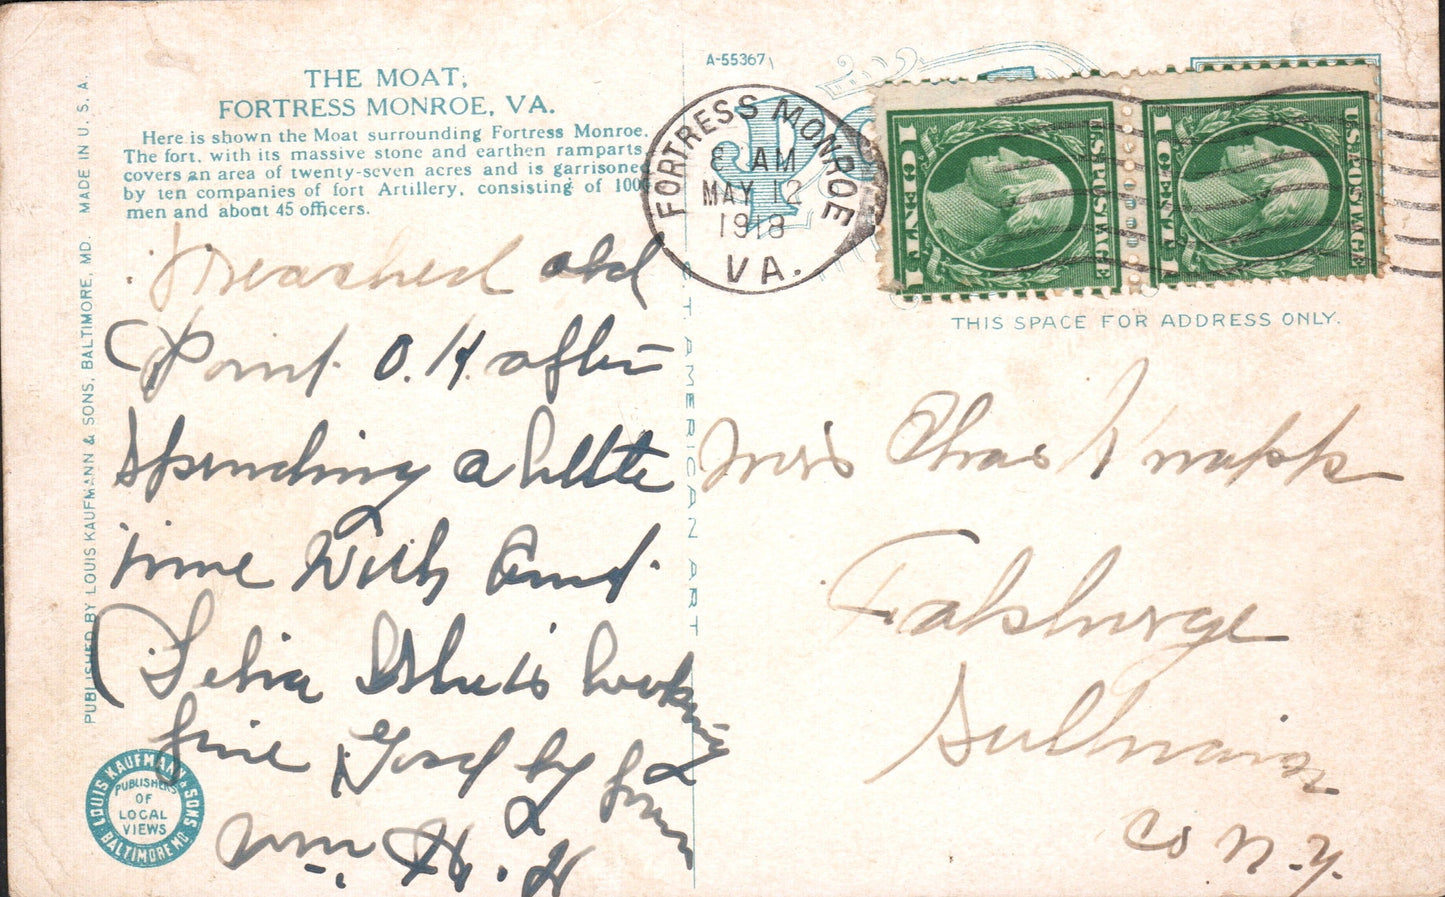 THE MOAT,
FORTRESS MONROE, VA.
Here is shown the Moat surrounding Fortress Monroe.
The fort, with its massive stone and earthen ramparts
covers an area of twenty-seven acres and is garrisoned
by ten companies of fort Artillery, consisting of 1000
men and about 45 officers.
MADE IN U. S. A.
PUBLISHED BY LOUIS KAUFMANN & SONS, BALTIMORE, MD.
Reached old
Point O.K. after
spending a little
time with
Lelia She is looking
fine Good by from
Wm H. H.
LOUIS KAUFMANN & SONS
PUBLISHERS
OF
LOCAL
VIEWS
BALTIMORE MD
A-55367
POS
ST AMERICAN ART
FORTRESS MONROE
8 AM
MAY 12
1918
VA.
U.S. POSTAGE
1 CENT 1
U.S. POSTAGE
1 CENT 1
THIS SPACE FOR ADDRESS ONLY.
Mrs Chas Knapp
Falsburge
Sullivan
Co N.Y.